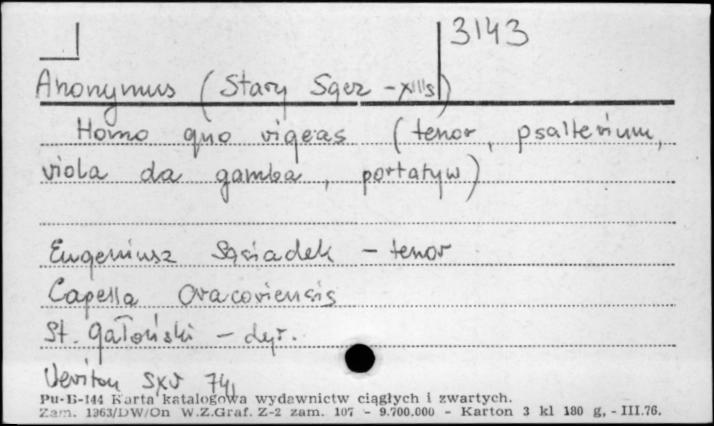 3143
Anonymus (Stary Sącz - XIIIs)
Homo quo vigeas (tenor, psalterium,
viola da gamba, portatyw)
Eugeniusz Sąsiadek - tenor
Capella Cracoviensis
St. Gałoński - dyr.
Veriton SXV 74
Pu-B-144 Karta katalogowa wydawnictw ciągłych i zwartych.
Zam. 1363/DW/On W.Z.Graf. Z-2 zam. 107 - 9.700.000 - Karton 3 kl 180 g, - III.76.